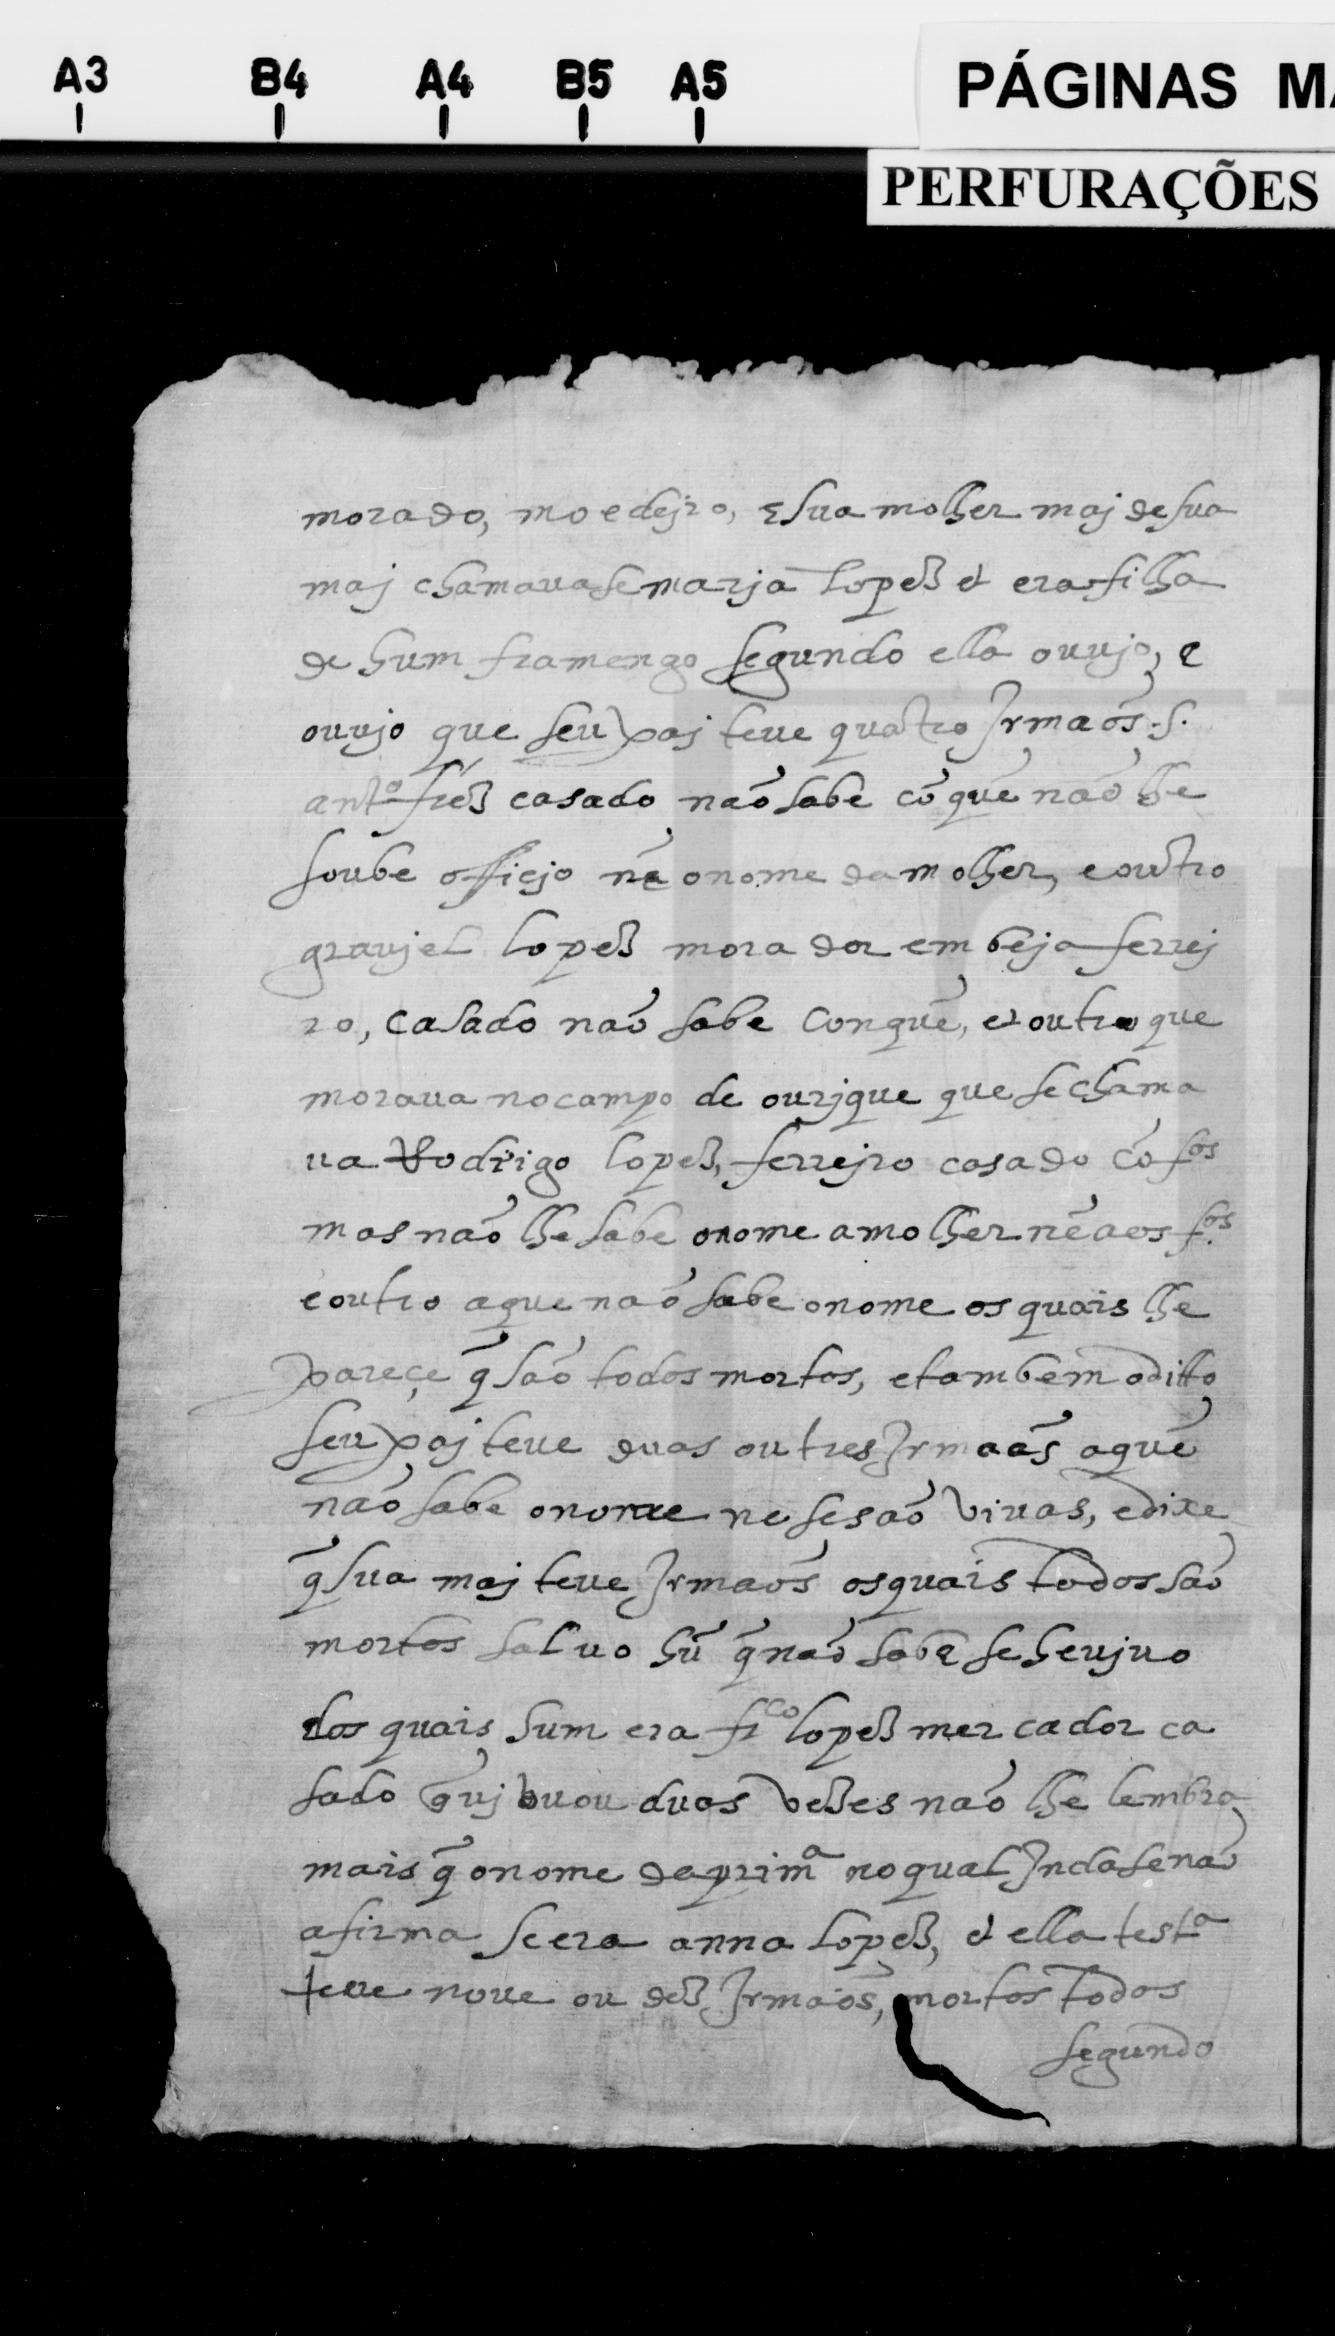 A3 B4 A4 B5 A5
PÁGINAS MA
PERFURAÇÕES
morado, moedejro, e sua molher maj de sua
maj chamauase marja lopez et era filha
de hum framengo segundo ella ouujo, e
ouujo que seu paj teue quatro Jrmaõs .s.
antº frez casado naõ sabe cõ quẽ naõ lhe
soube officjo nẽ o nome da molher, e outro
graujel lopez morador em beja ferrej
ro, casado naõ sabe conquẽ, et outro que
moraua no campo de ourjque que se chama
ua Rodrigo lopez, ferrejro casado cõ fos
mas naõ lhe sabe o nome a molher nẽ aos fos
e outro a que naõ sabe o nome os quais lhe
pareçe q̃ saõ todos mortos, e tambem o ditto
seu paj teue duas ou tres Jrmaãs a quẽ
naõ sabe o nome ne se saõ viuas, e dixe
q̃ sua maj teue Jrmaõs os quais todos saõ
mortos saluo hũ q̃ naõ sabe se he ujuo
dos quais hum era frco lopez mercador ca
sado q̃ ujuuou duas vezes naõ lhe lembra
mais q̃ o nome da primª no qual Jnda se naõ
afirma se era anna lopez, et ella testª
teue noue ou dez Jrmaõs, mortos todos
segundo